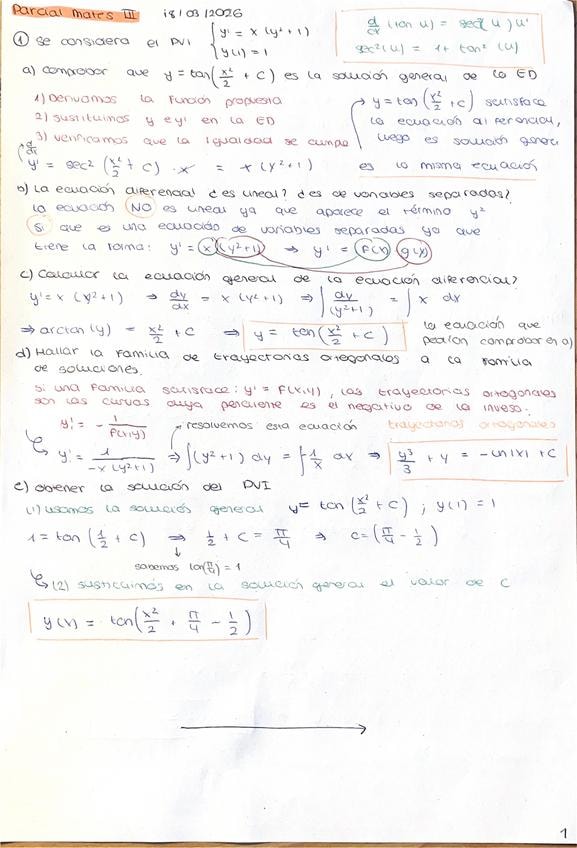 Parcial Mates III 18/03/2026
d/dx (tan u) = sec²(u) u'
sec²(u) = 1 + tan²(u)
① Se considera el PVI { y' = x (y²+1)
y(1) = 1
a) Comprobar que y = tan(x²/2 + C) es la solución general de la ED
1) Derivamos la función propuesta
2) Sustituimos y e y' en la ED
3) Verificamos que la igualdad se cumple
→ y = tan(x²/2 + C) satisface
la ecuación diferencial,
luego es solución general
d/dx
y' = sec²(x²/2 + C) · x = x (y²+1) es la misma ecuación
b) La ecuación diferencial ¿es lineal? ¿es de variables separadas?
La ecuación NO es lineal ya que aparece el término y²
Sí que es una ecuación de variables separadas ya que
tiene la forma: y' = x (y²+1) ⇒ y' = f(x) g(y)
c) Calcular la ecuación general de la ecuación diferencial?
y' = x (y²+1) ⇒ dy/dx = x (y²+1) ⇒ ∫ dy/(y²+1) = ∫ x dx
⇒ arctan(y) = x²/2 + C ⇒ y = tan(x²/2 + C)
la ecuación que
pedían comprobar en a)
d) Hallar la familia de trayectorias ortogonales a la familia
de soluciones.
Si una familia satisface: y' = f(x,y), las trayectorias ortogonales
son las curvas cuya pendiente es el negativo de la inversa:
y' = - 1/f(x,y) → resolvemos esta ecuación trayectorias ortogonales
y' = 1/-x(y²+1) ⇒ ∫(y²+1) dy = ∫-1/x dx ⇒ y³/3 + y = -ln|x| + C
e) Obtener la solución del PVI
(1) usamos la solución general y = tan(x²/2 + C) ; y(1) = 1
1 = tan(1/2 + C) ⇒ 1/2 + C = π/4 ⇒ C = (π/4 - 1/2)
sabemos tan(π/4) = 1
(2) sustituimos en la solución general el valor de C
y(x) = tan(x²/2 + π/4 - 1/2)
1